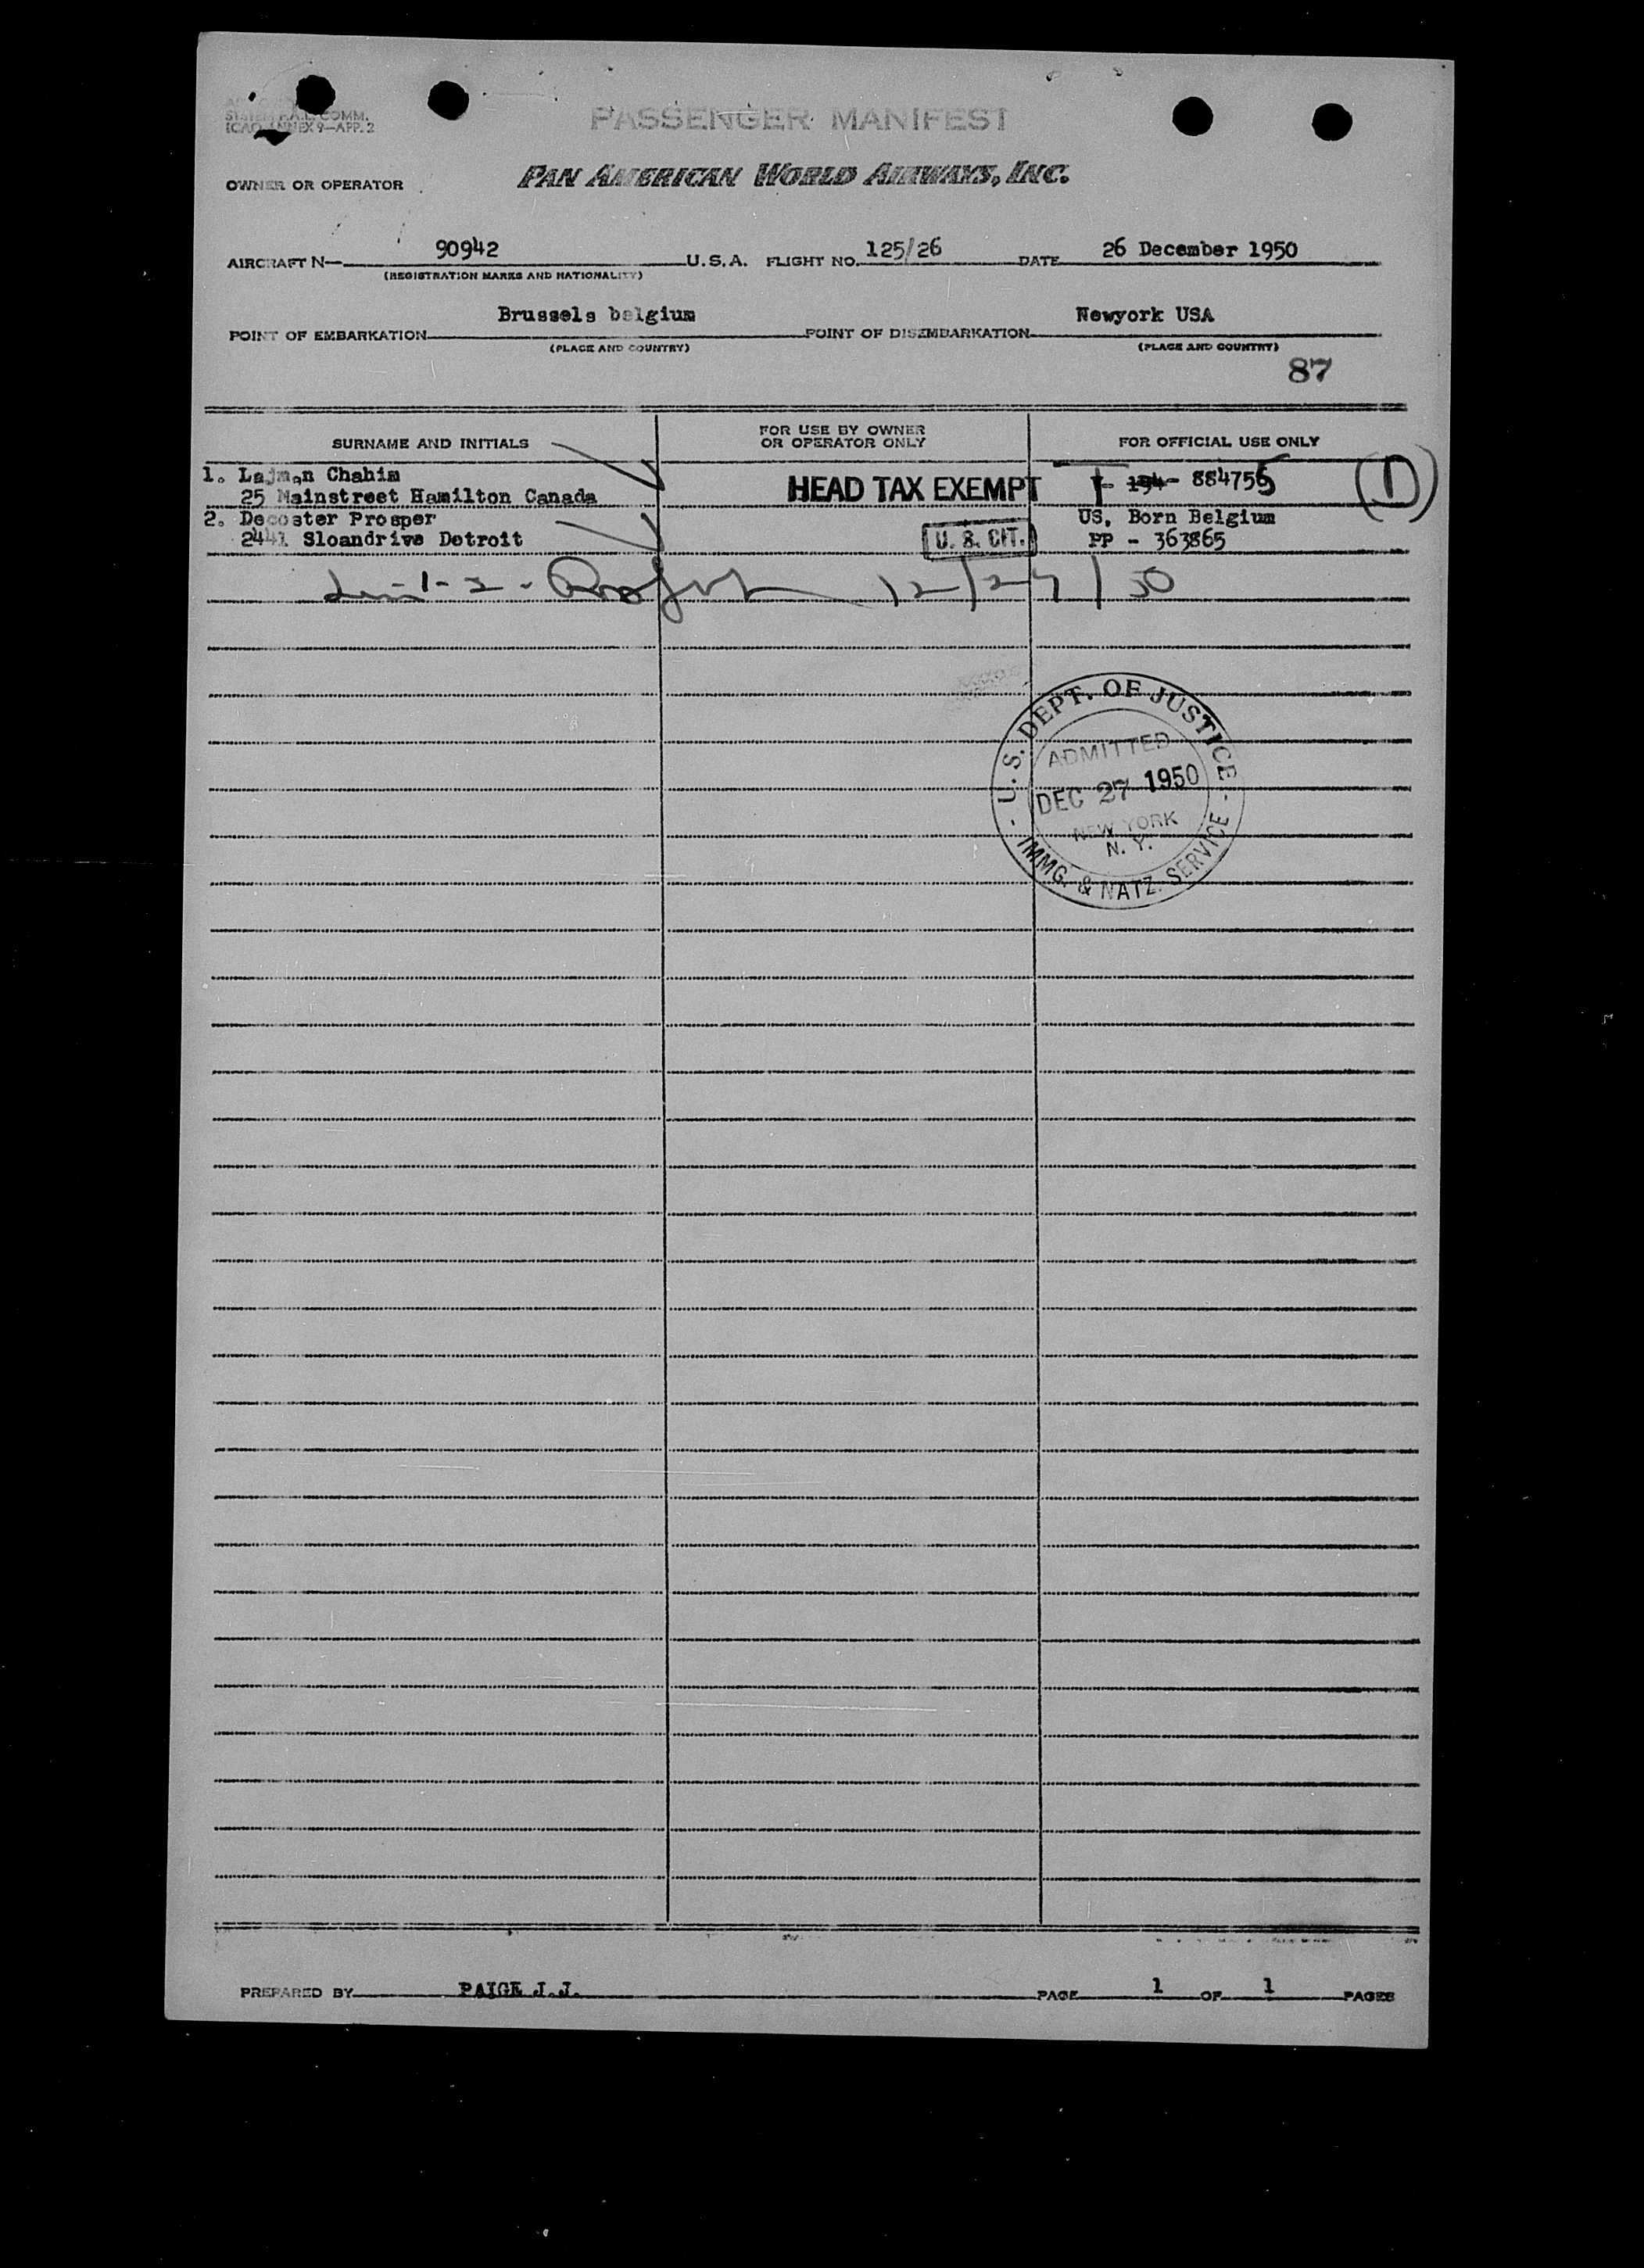 SYSTEM F.A.L. COMM.
ICAO ANNEX 9—APP. 2
PASSENGER MANIFEST
OWNER OR OPERATOR PAN AMERICAN WORLD AIRWAYS, INC.
AIRCRAFT N— 90942 U.S.A. FLIGHT NO. 125/26 DATE 26 December 1950
(REGISTRATION MARKS AND NATIONALITY)
POINT OF EMBARKATION Brussels belgium POINT OF DISEMBARKATION Newyork USA
(PLACE AND COUNTRY) (PLACE AND COUNTRY)
87
SURNAME AND INITIALS FOR USE BY OWNER OR OPERATOR ONLY FOR OFFICIAL USE ONLY
1. Lajman Chahim HEAD TAX EXEMPT T- 194- 884755 (1)
25 Mainstreet Hamilton Canada
2. Decoster Prosper US, Born Belgium
2441 Sloandrive Detroit U. S. CIT. PP - 363865
1-2- 12/27/50
- U. S. DEPT. OF JUSTICE -
ADMITTED
DEC 27 1950
NEW YORK
N. Y.
IMMG. & NATZ. SERVICE
PREPARED BY PAIGE J.J. PAGE 1 OF 1 PAGES